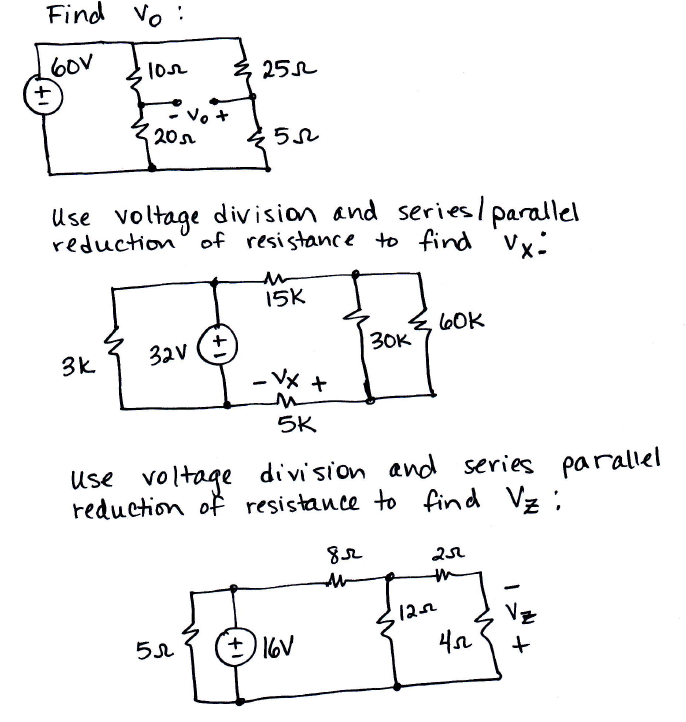 Find Vo :
60V 10Ω 25Ω
- Vo +
20Ω 5Ω
Use voltage division and series/parallel
reduction of resistance to find Vx:
15K
3K 32V 30K 60K
- Vx +
5K
Use voltage division and series parallel
reduction of resistance to find Vz :
8Ω 2Ω
-
12Ω Vz
5Ω 16V 4Ω +